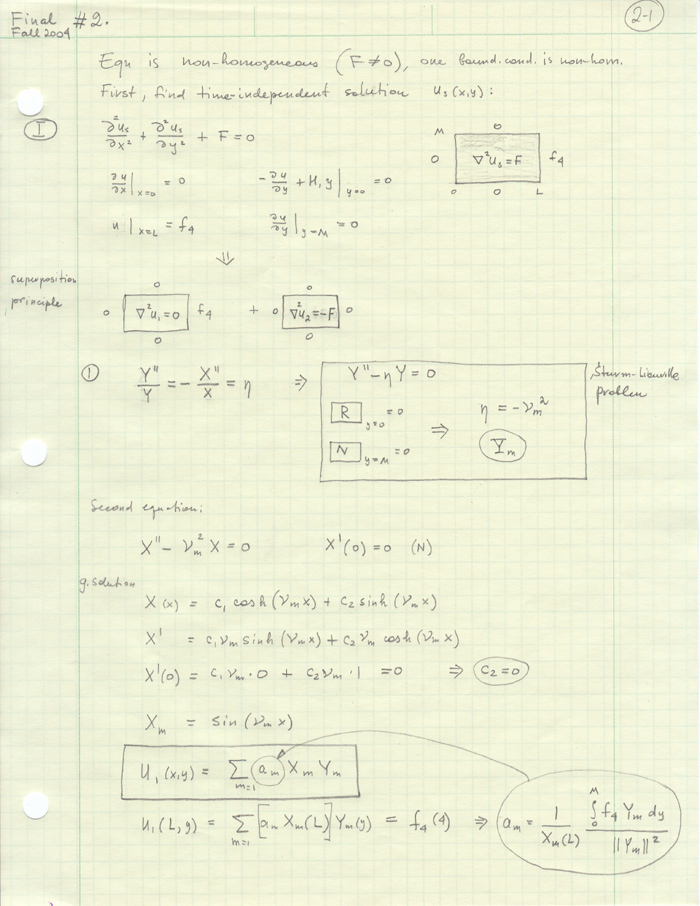 Final #2.
Fall 2004
2-1
Equ is non-homogeneous (F≠0), one bound. cond. is non-hom.
First, find time-independent solution u_s(x,y):
I
∂²u_s/∂x² + ∂²u_s/∂y² + F = 0
M 0
0 ∇²u_s = F f₄
0 0 L
∂u/∂x |x=0 = 0 -∂u/∂y + H₁y |y=0 = 0
u |x=L = f₄ ∂u/∂y |y=M = 0
⇓
superposition
principle
0 0
0 ∇²u₁=0 f₄ + 0 ∇²u₂=-F 0
0 0
① Y''/Y = - X''/X = η ⇒ Y'' - ηY = 0
Sturm-Liouville
problem
R y=0 = 0 η = -ν_m²
N y=M = 0 ⇒ Y_m
Second equation:
X'' - ν_m² X = 0 X'(0) = 0 (N)
g. solution
X(x) = c₁ cosh(ν_m x) + c₂ sinh(ν_m x)
X' = c₁ν_m sinh(ν_m x) + c₂ν_m cosh(ν_m x)
X'(0) = c₁ν_m·0 + c₂ν_m·1 = 0 ⇒ c₂=0
X_m = sin(ν_m x)
u₁(x,y) = Σ m=1 a_m X_m Y_m
u₁(L,y) = Σ m=1 [a_m X_m(L)] Y_m(y) = f₄(4) ⇒ a_m = 1/X_m(L) ∫₀^M f₄ Y_m dy / ||Y_m||²